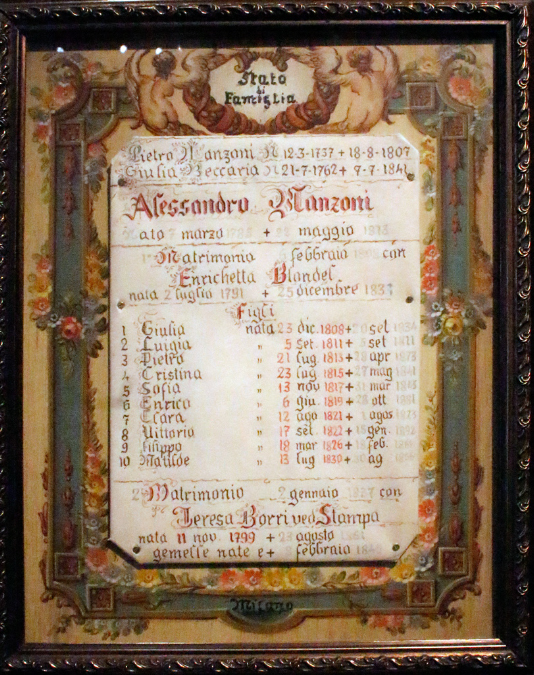 Stato
di
Famiglia
Pietro Manzoni N 12-3-1737 + 18-8-1807
Giulia Beccaria N 21-7-1762 + 7-7-1841
Alessandro Manzoni
Nato 7 marzo + 22 maggio
1º Matrimonio 6 febbraio con
Enrichetta Blondel
nata 2 luglio 1791 + 25 dicembre 1833
Figli
1 Giulia nata 23 dic. 1808 + 20 set.
2 Luigia " 5 set. 1811 + 5 set 1811
3 Pietro " 21 lug 1813 + 28 apr 1873
4 Cristina " 23 lug 1815 + 27 mag 1841
5 Sofia " 13 nov 1817 + 31 mar
6 Enrico " 6 giu. 1819 + 28 ott 1881
7 Clara " 12 ago 1821 + 1 agos 1823
8 Vittoria " 17 set. 1822 + gen.
9 Filippo " 18 mar 1826 + feb.
10 Matilde " 13 lug 1830 + 30
2º Matrimonio 2 gennaio 1837 con
Teresa Borri ved Stampa
nata 11 nov. 1799 + 23 agosto 1861
gemelle nate e + febbraio
Milano